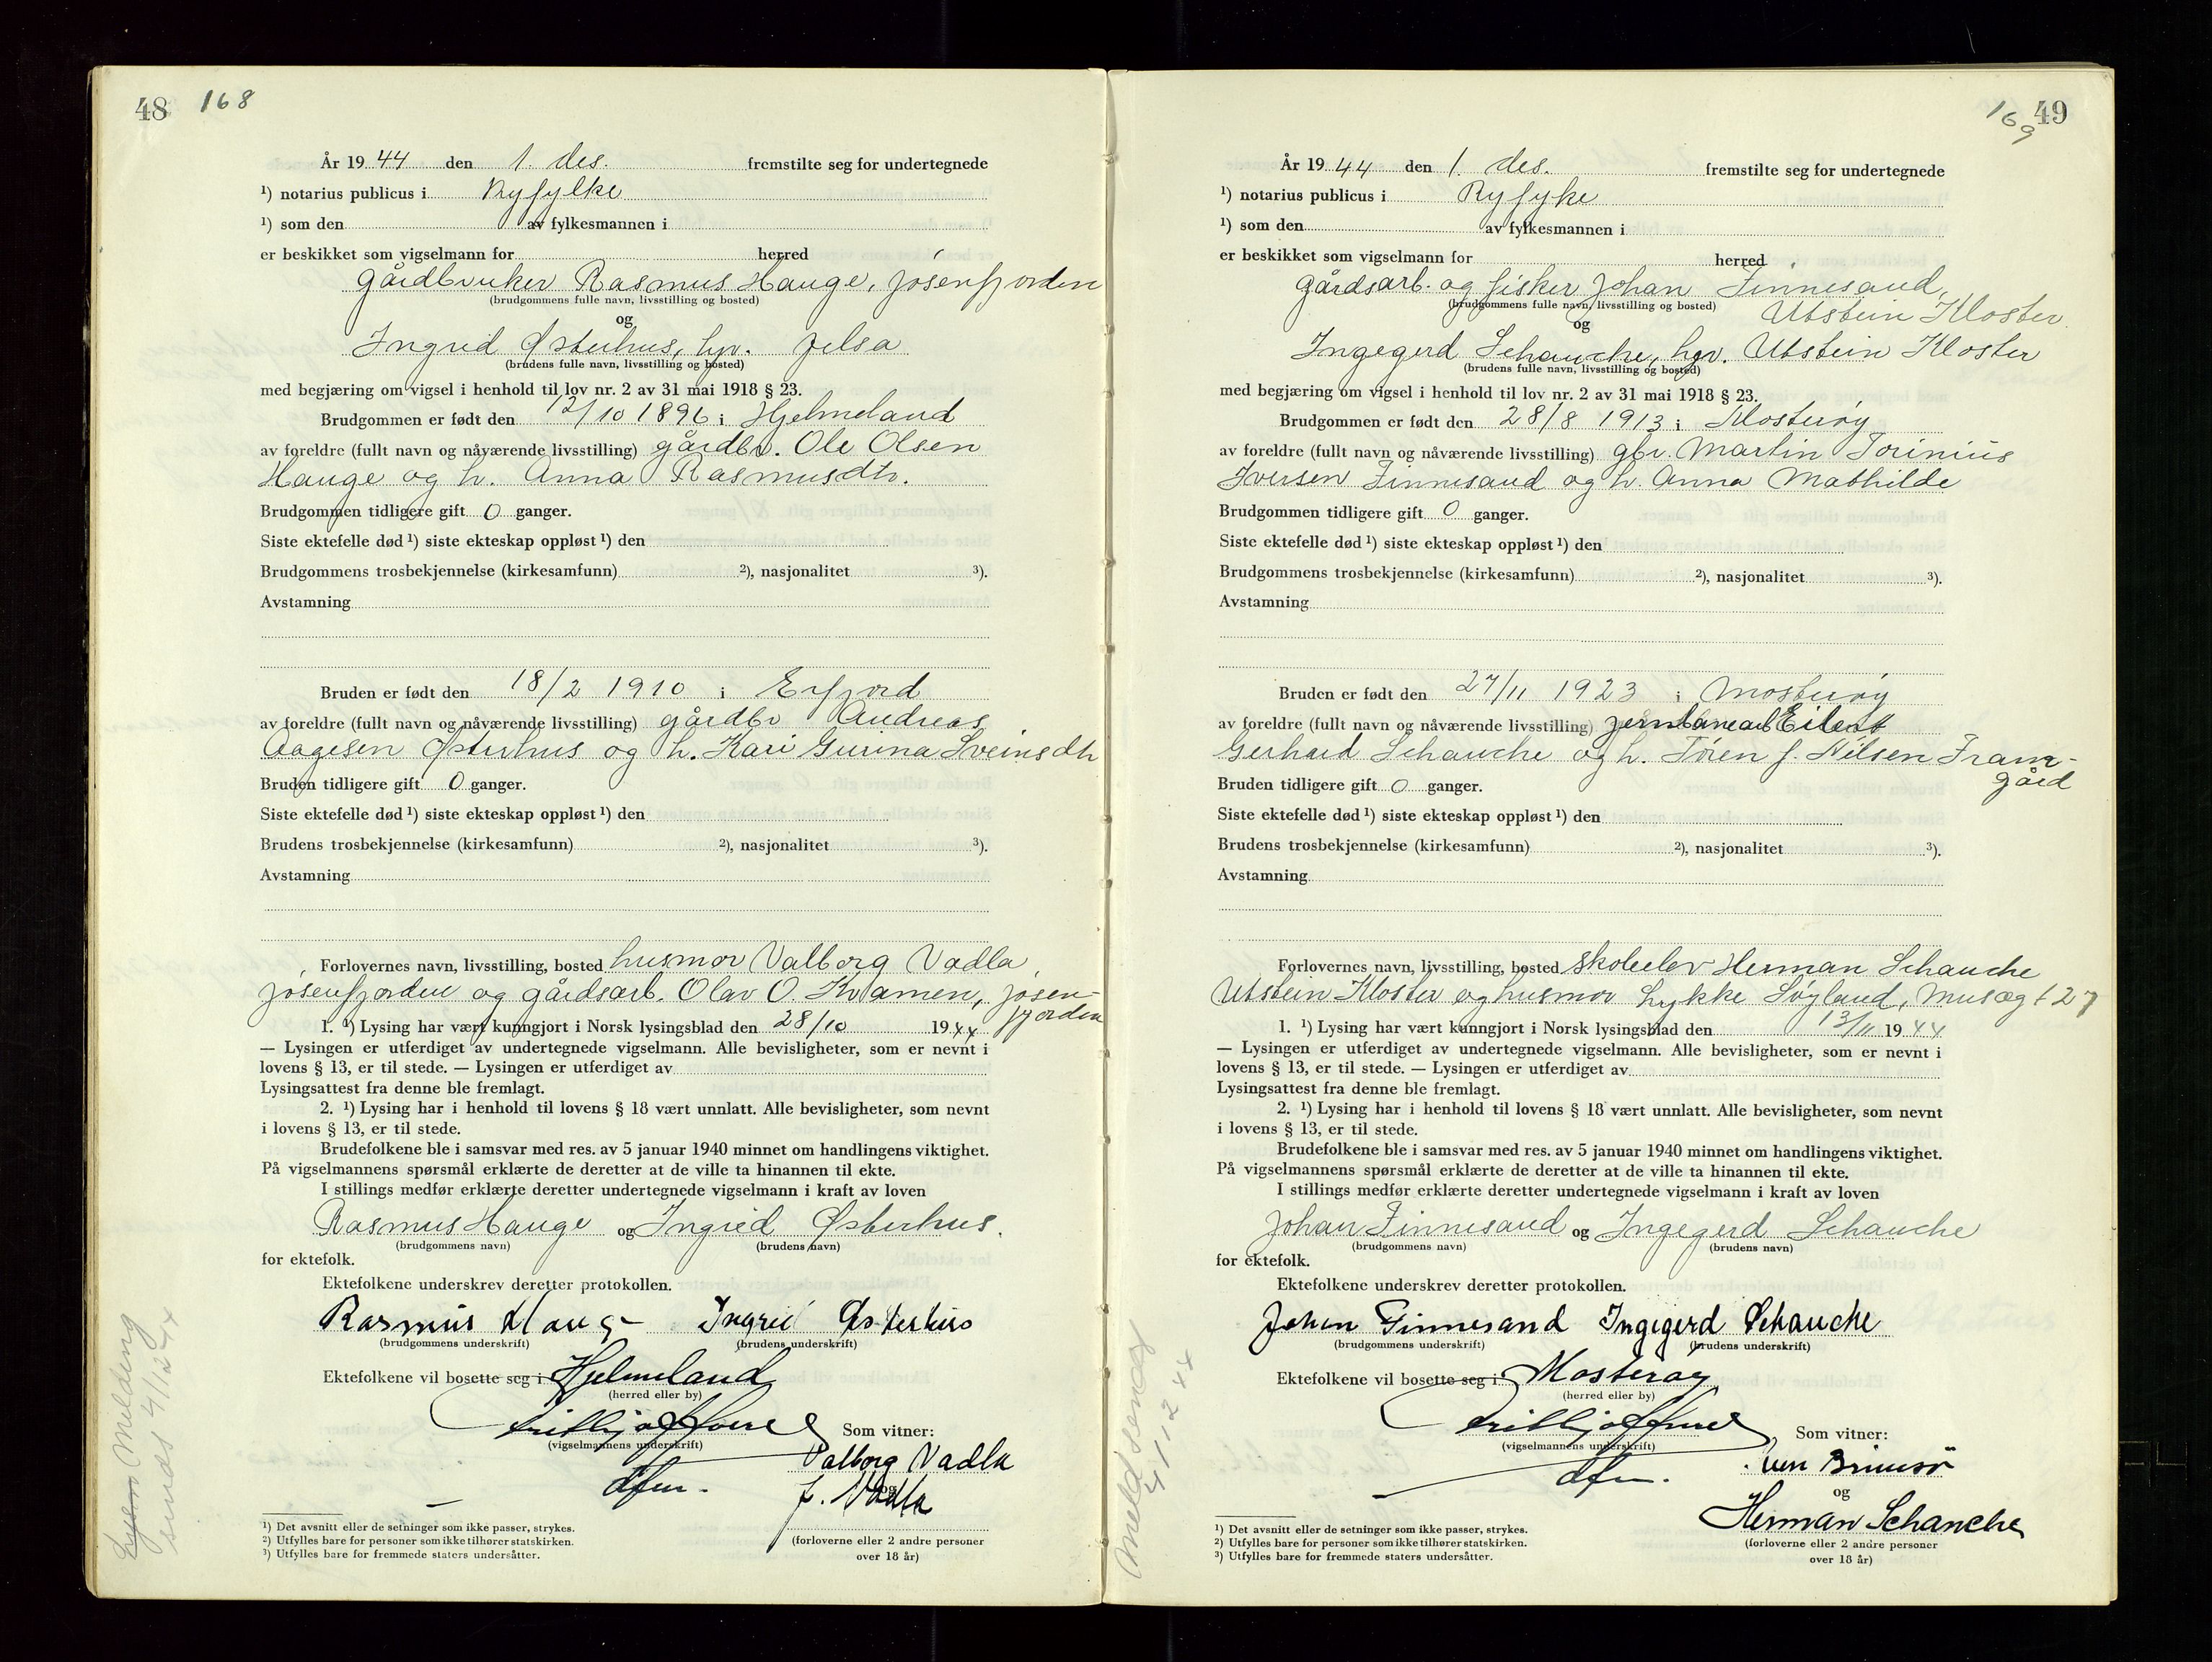 48 168
År 19 44 den 1. des. fremstilte seg for undertegnede
¹) notarius publicus i Ryfylke
¹) som den av fylkesmannen i
er beskikket som vigselmann for herred
gårdbruker Rasmus Hauge, Jøsenfjorden
(brudgommens fulle navn, livsstilling og bosted)
og
Ingrid Østerhus, hv. Jelsa
(brudens fulle navn, livsstilling og bosted)
med begjæring om vigsel i henhold til lov nr. 2 av 31 mai 1918 § 23.
Brudgommen er født den 12/10 1896 i Hjelmeland
av foreldre (fullt navn og nåværende livsstilling) gårdbr. Ole Olsen
Hauge og h. Anna Rasmusdtr.
Brudgommen tidligere gift 0 ganger.
Siste ektefelle død ¹) siste ekteskap oppløst ¹) den
Brudgommens trosbekjennelse (kirkesamfunn) ²), nasjonalitet ³).
Avstamning
Bruden er født den 18/2 1910 i Erfjord
av foreldre (fullt navn og nåværende livsstilling) gårdbr Andreas
Aagesen Østerhus og h. Kari Gurina Sveinsdtr
Bruden tidligere gift 0 ganger.
Siste ektefelle død ¹) siste ekteskap oppløst ¹) den
Brudens trosbekjennelse (kirkesamfunn) ²), nasjonalitet ³).
Avstamning
Forlovernes navn, livsstilling, bosted husmor Valborg Vadla
Jøsenfjorden og gårdsarb. Olav O. Kvamen, Jøsen-
fjorden
1. ¹) Lysing har vært kunngjort i Norsk lysingsblad den 28/10 1944
— Lysingen er utferdiget av undertegnede vigselmann. Alle bevisligheter, som er nevnt i
lovens § 13, er til stede. — Lysingen er utferdiget av
Lysingsattest fra denne ble fremlagt.
2. ¹) Lysing har i henhold til lovens § 18 vært unnlatt. Alle bevisligheter, som nevnt
i lovens § 13, er til stede.
Brudefolkene ble i samsvar med res. av 5 januar 1940 minnet om handlingens viktighet.
På vigselmannens spørsmål erklærte de deretter at de ville ta hinannen til ekte.
I stillings medfør erklærte deretter undertegnede vigselmann i kraft av loven
Rasmus Hauge og Ingrid Østerhus.
(brudgommens navn) (brudens navn)
for ektefolk.
Ektefolkene underskrev deretter protokollen.
Rasmus Hauge Ingrid Østerhus
(brudgommens underskrift) (brudens underskrift)
Ektefolkene vil bosette seg i Hjelmeland
(herred eller by)
(vigselmannens underskrift)
dfm.
Som vitner:
Valborg Vadla
og
J. Vadla
(forloverne eller 2 andre personer
over 18 år)
¹) Det avsnitt eller de setninger som ikke passer, strykes.
²) Utfylles bare for personer som ikke tilhører statskirken.
³) Utfylles bare for fremmede staters undersåtter.
Melding
sendt 4/12 44
169 49
År 19 44 den 1. des. fremstilte seg for undertegnede
¹) notarius publicus i Ryfyke
¹) som den av fylkesmannen i
er beskikket som vigselmann for herred
gårdsarb. og fisker Johan Finnesand,
Utstein Kloster
(brudgommens fulle navn, livsstilling og bosted)
og
Ingegerd Schanche, hv. Utstein Kloster
(brudens fulle navn, livsstilling og bosted)
med begjæring om vigsel i henhold til lov nr. 2 av 31 mai 1918 § 23.
Brudgommen er født den 28/8 1913 i Mosterøy
av foreldre (fullt navn og nåværende livsstilling) gbr. Martin Torinius
Iversen Finnesand og h. Anna Mathilde
Brudgommen tidligere gift 0 ganger.
Siste ektefelle død ¹) siste ekteskap oppløst ¹) den
Brudgommens trosbekjennelse (kirkesamfunn) ²), nasjonalitet ³).
Avstamning
Bruden er født den 27/11 1923 i Mosterøy
av foreldre (fullt navn og nåværende livsstilling) jernbanearb Eilert
Gerhard Schanche og h. Tøren f. Nilsen Fram-
gård
Bruden tidligere gift 0 ganger.
Siste ektefelle død ¹) siste ekteskap oppløst ¹) den
Brudens trosbekjennelse (kirkesamfunn) ²), nasjonalitet ³).
Avstamning
Forlovernes navn, livsstilling, bosted skoleelev Herman Schanche
Utstein Kloster og husmor Lykke Søyland, Musægt 27
1. ¹) Lysing har vært kunngjort i Norsk lysingsblad den 13/11 1944
— Lysingen er utferdiget av undertegnede vigselmann. Alle bevisligheter, som er nevnt i
lovens § 13, er til stede. — Lysingen er utferdiget av
Lysingsattest fra denne ble fremlagt.
2. ¹) Lysing har i henhold til lovens § 18 vært unnlatt. Alle bevisligheter, som nevnt
i lovens § 13, er til stede.
Brudefolkene ble i samsvar med res. av 5 januar 1940 minnet om handlingens viktighet.
På vigselmannens spørsmål erklærte de deretter at de ville ta hinannen til ekte.
I stillings medfør erklærte deretter undertegnede vigselmann i kraft av loven
Johan Finnesand og Ingegerd Schanche
(brudgommens navn) (brudens navn)
for ektefolk.
Ektefolkene underskrev deretter protokollen.
Johan Finnesand Ingegerd Schanche
(brudgommens underskrift) (brudens underskrift)
Ektefolkene vil bosette seg i Mosterøy
(herred eller by)
(vigselmannens underskrift)
dfm.
Som vitner:
Brimsø
og
Herman Schanche
(forloverne eller 2 andre personer
over 18 år)
¹) Det avsnitt eller de setninger som ikke passer, strykes.
²) Utfylles bare for personer som ikke tilhører statskirken.
³) Utfylles bare for fremmede staters undersåtter.
4/12 44